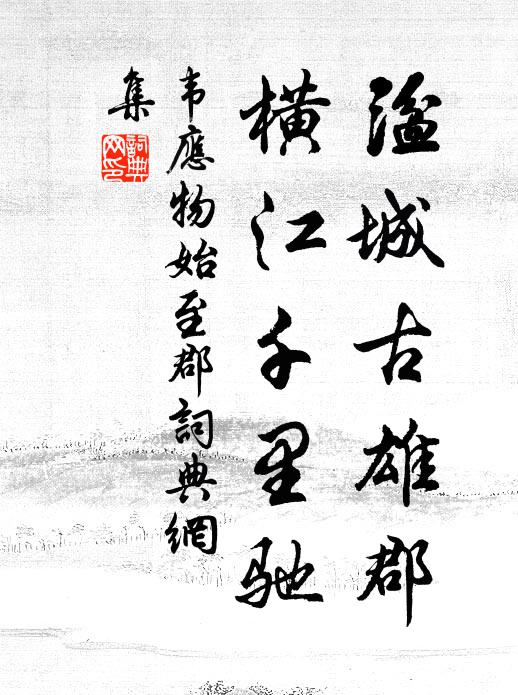 湓城古雄郡
橫江千里馳
韦應物始至郡詞典網
集
詞典
网印